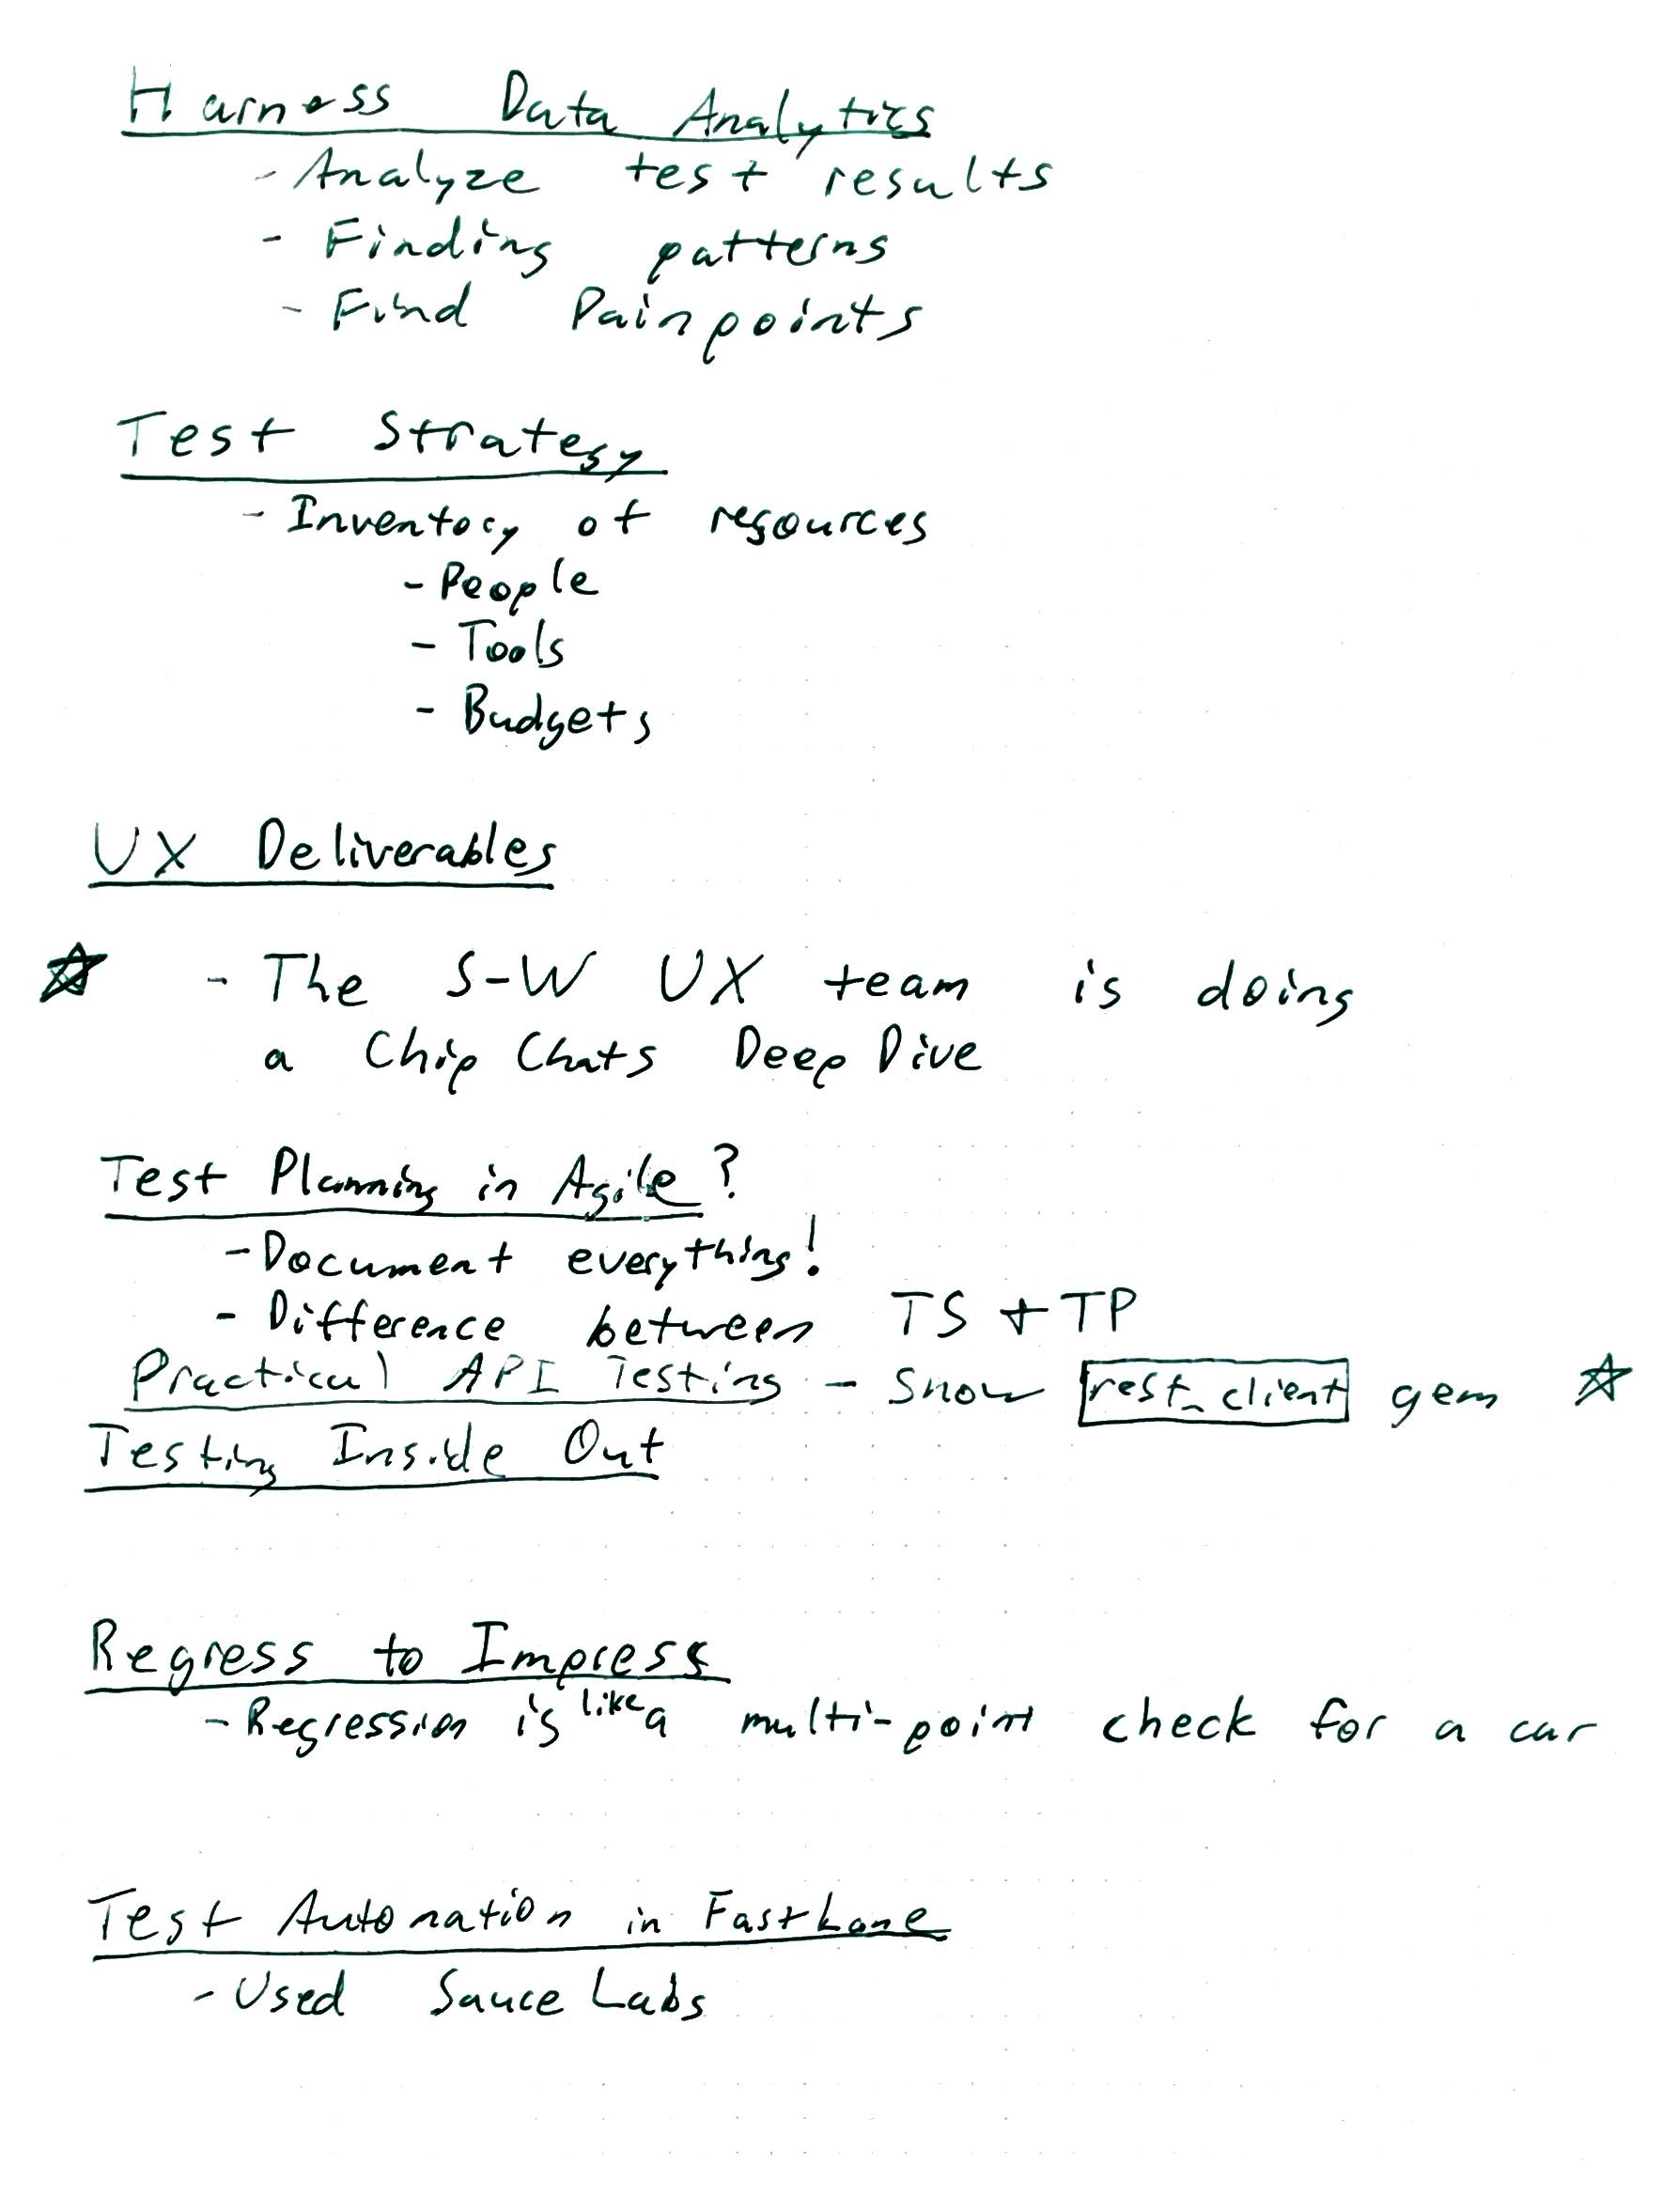 Harness Data Analytics
- Analyze test results
- Finding patterns
- Find Painpoints
Test Strategy
- Inventory of resources
- People
- Tools
- Budgets
UX Deliverables
- The S-W UX team is doing
a Chip Chats Deep Dive
Test Planning in Agile?
- Document everything!
- Difference between TS + TP
Practical API Testing - Snow rest_client gem
Testing Inside Out
Regress to Impress
- Regression is like a multi-point check for a car
Test Automation in FastLane
- Used Sauce Labs